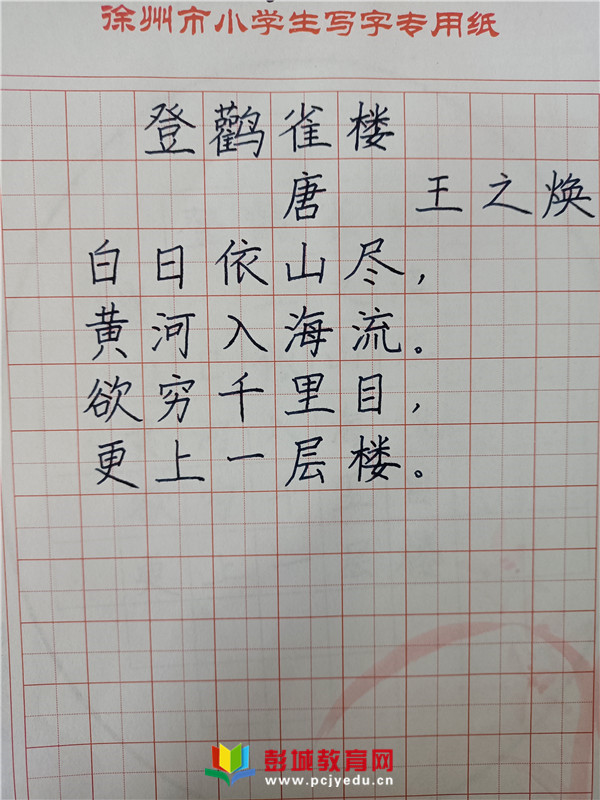 徐州市小学生写字专用纸
登鹳雀楼
唐 王之焕
白日依山尽，
黄河入海流。
欲穷千里目，
更上一层楼。
彭城教育网
www.pcjyedu.cn